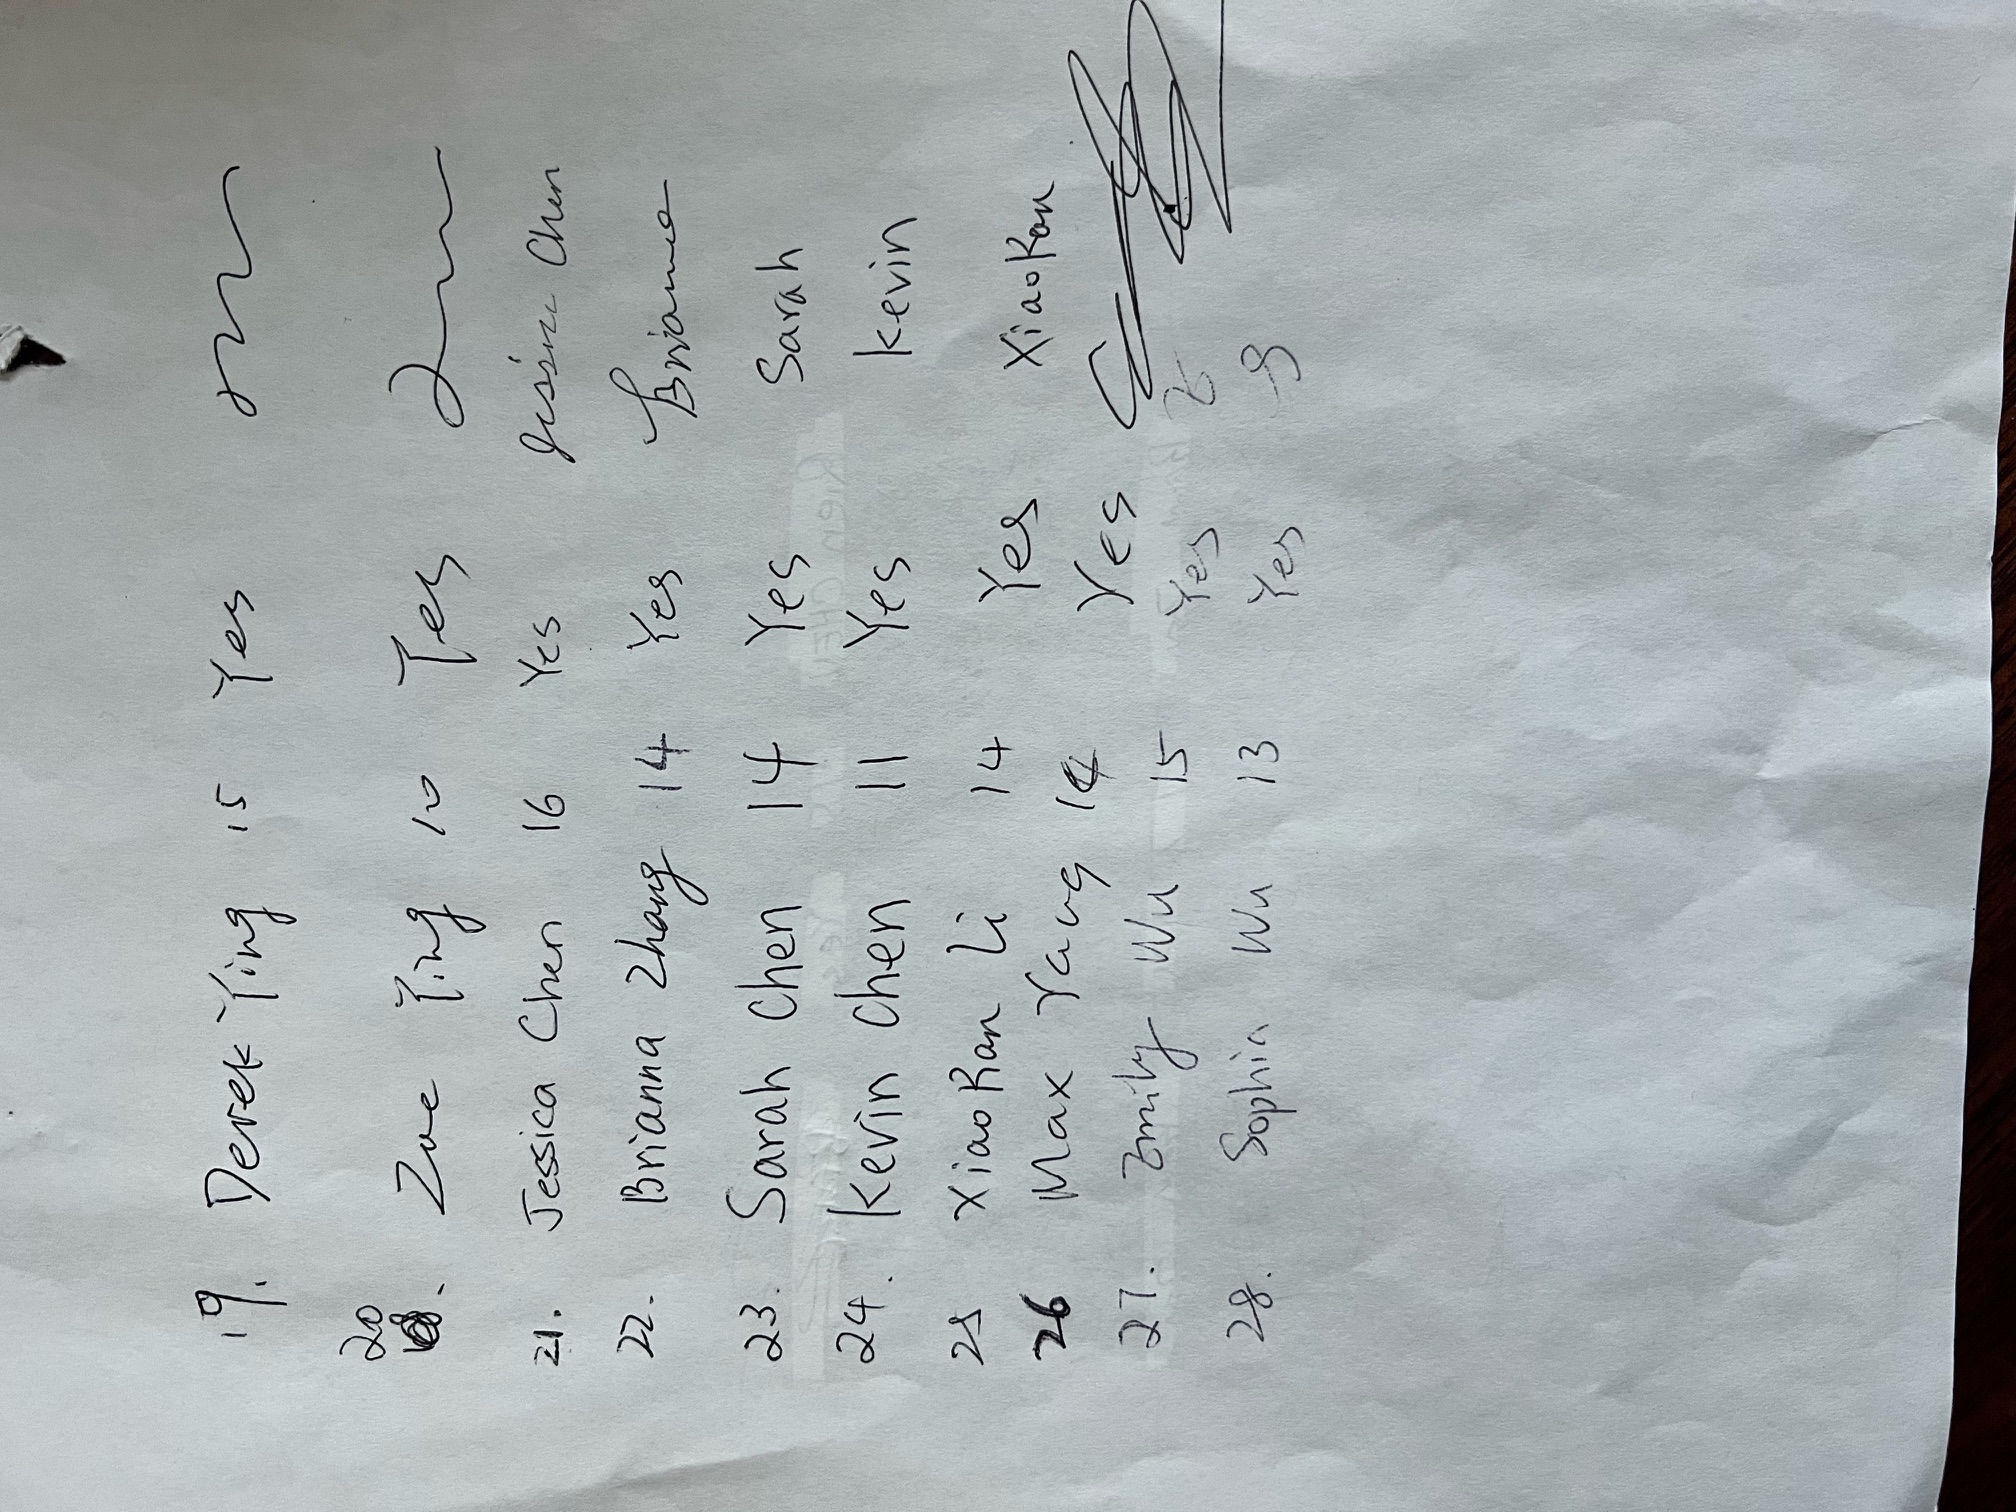 19. Derek Ying 15 Yes
20. Zoe Ying 10 Yes
21. Jessica Chen 16 Yes Jessica Chen
22. Brianna Zhang 14 Yes Brianna
23. Sarah Chen 14 Yes Sarah
24. Kevin Chen 11 Yes Kevin
25 XiaoRan Li 14 Yes XiaoRan
26 Max Yang 14 Yes
27. Emily Wu 15 Yes
28. Sophia Wu 13 Yes